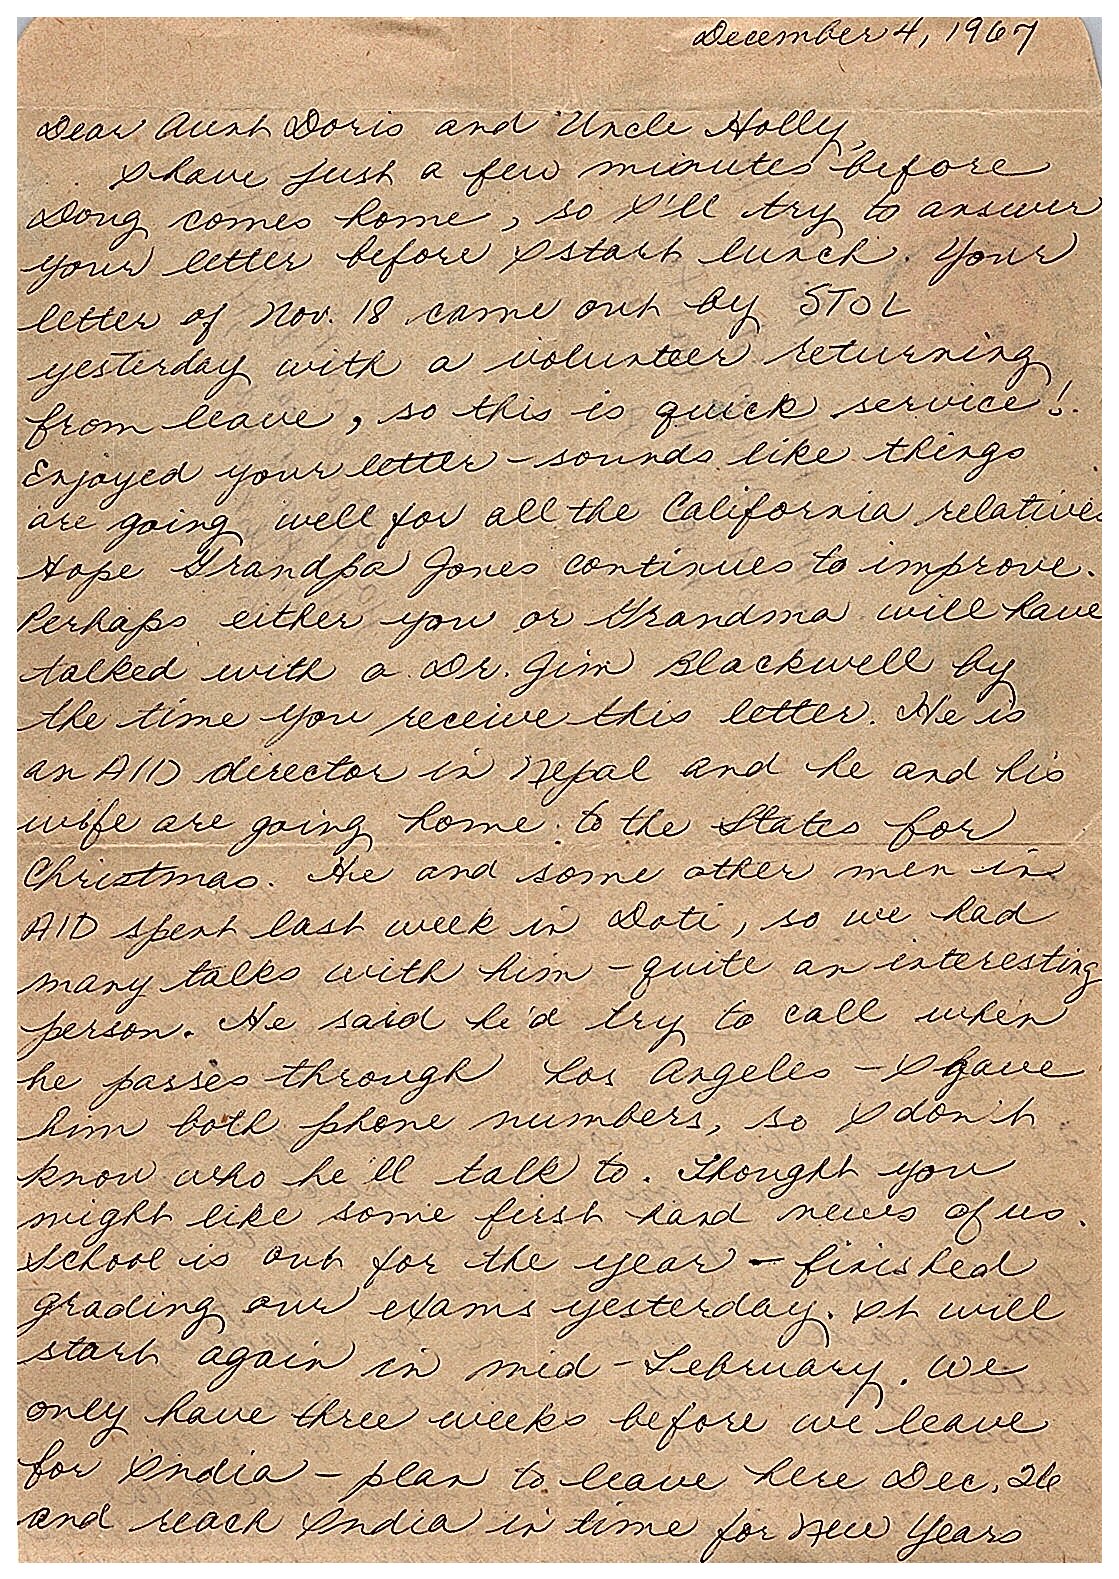 December 4, 1967
Dear Aunt Doris and Uncle Holly,
I have just a few minutes before
Doug comes home, so I'll try to answer
your letter before I start lunch. Your
letter of Nov. 18 came out by STOL
yesterday with a volunteer returning
from leave, so this is quick service!
Enjoyed your letter - sounds like things
are going well for all the California relatives
Hope Grandpa Jones continues to improve.
Perhaps either you or Grandma will have
talked with a Dr. Jim Blackwell by
the time you receive this letter. He is
an AID director in Nepal and he and his
wife are going home to the States for
Christmas. He and some other men in
AID spent last week in Doti, so we had
many talks with him - quite an interesting
person. He said he'd try to call when
he passes through Los Angeles - I gave
him both phone numbers, so I don't
know who he'll talk to. Thought you
might like some first hand news of us.
School is out for the year - finished
grading our exams yesterday. It will
start again in mid-February. We
only have three weeks before we leave
for India - plan to leave here Dec. 26
and reach India in time for New Years